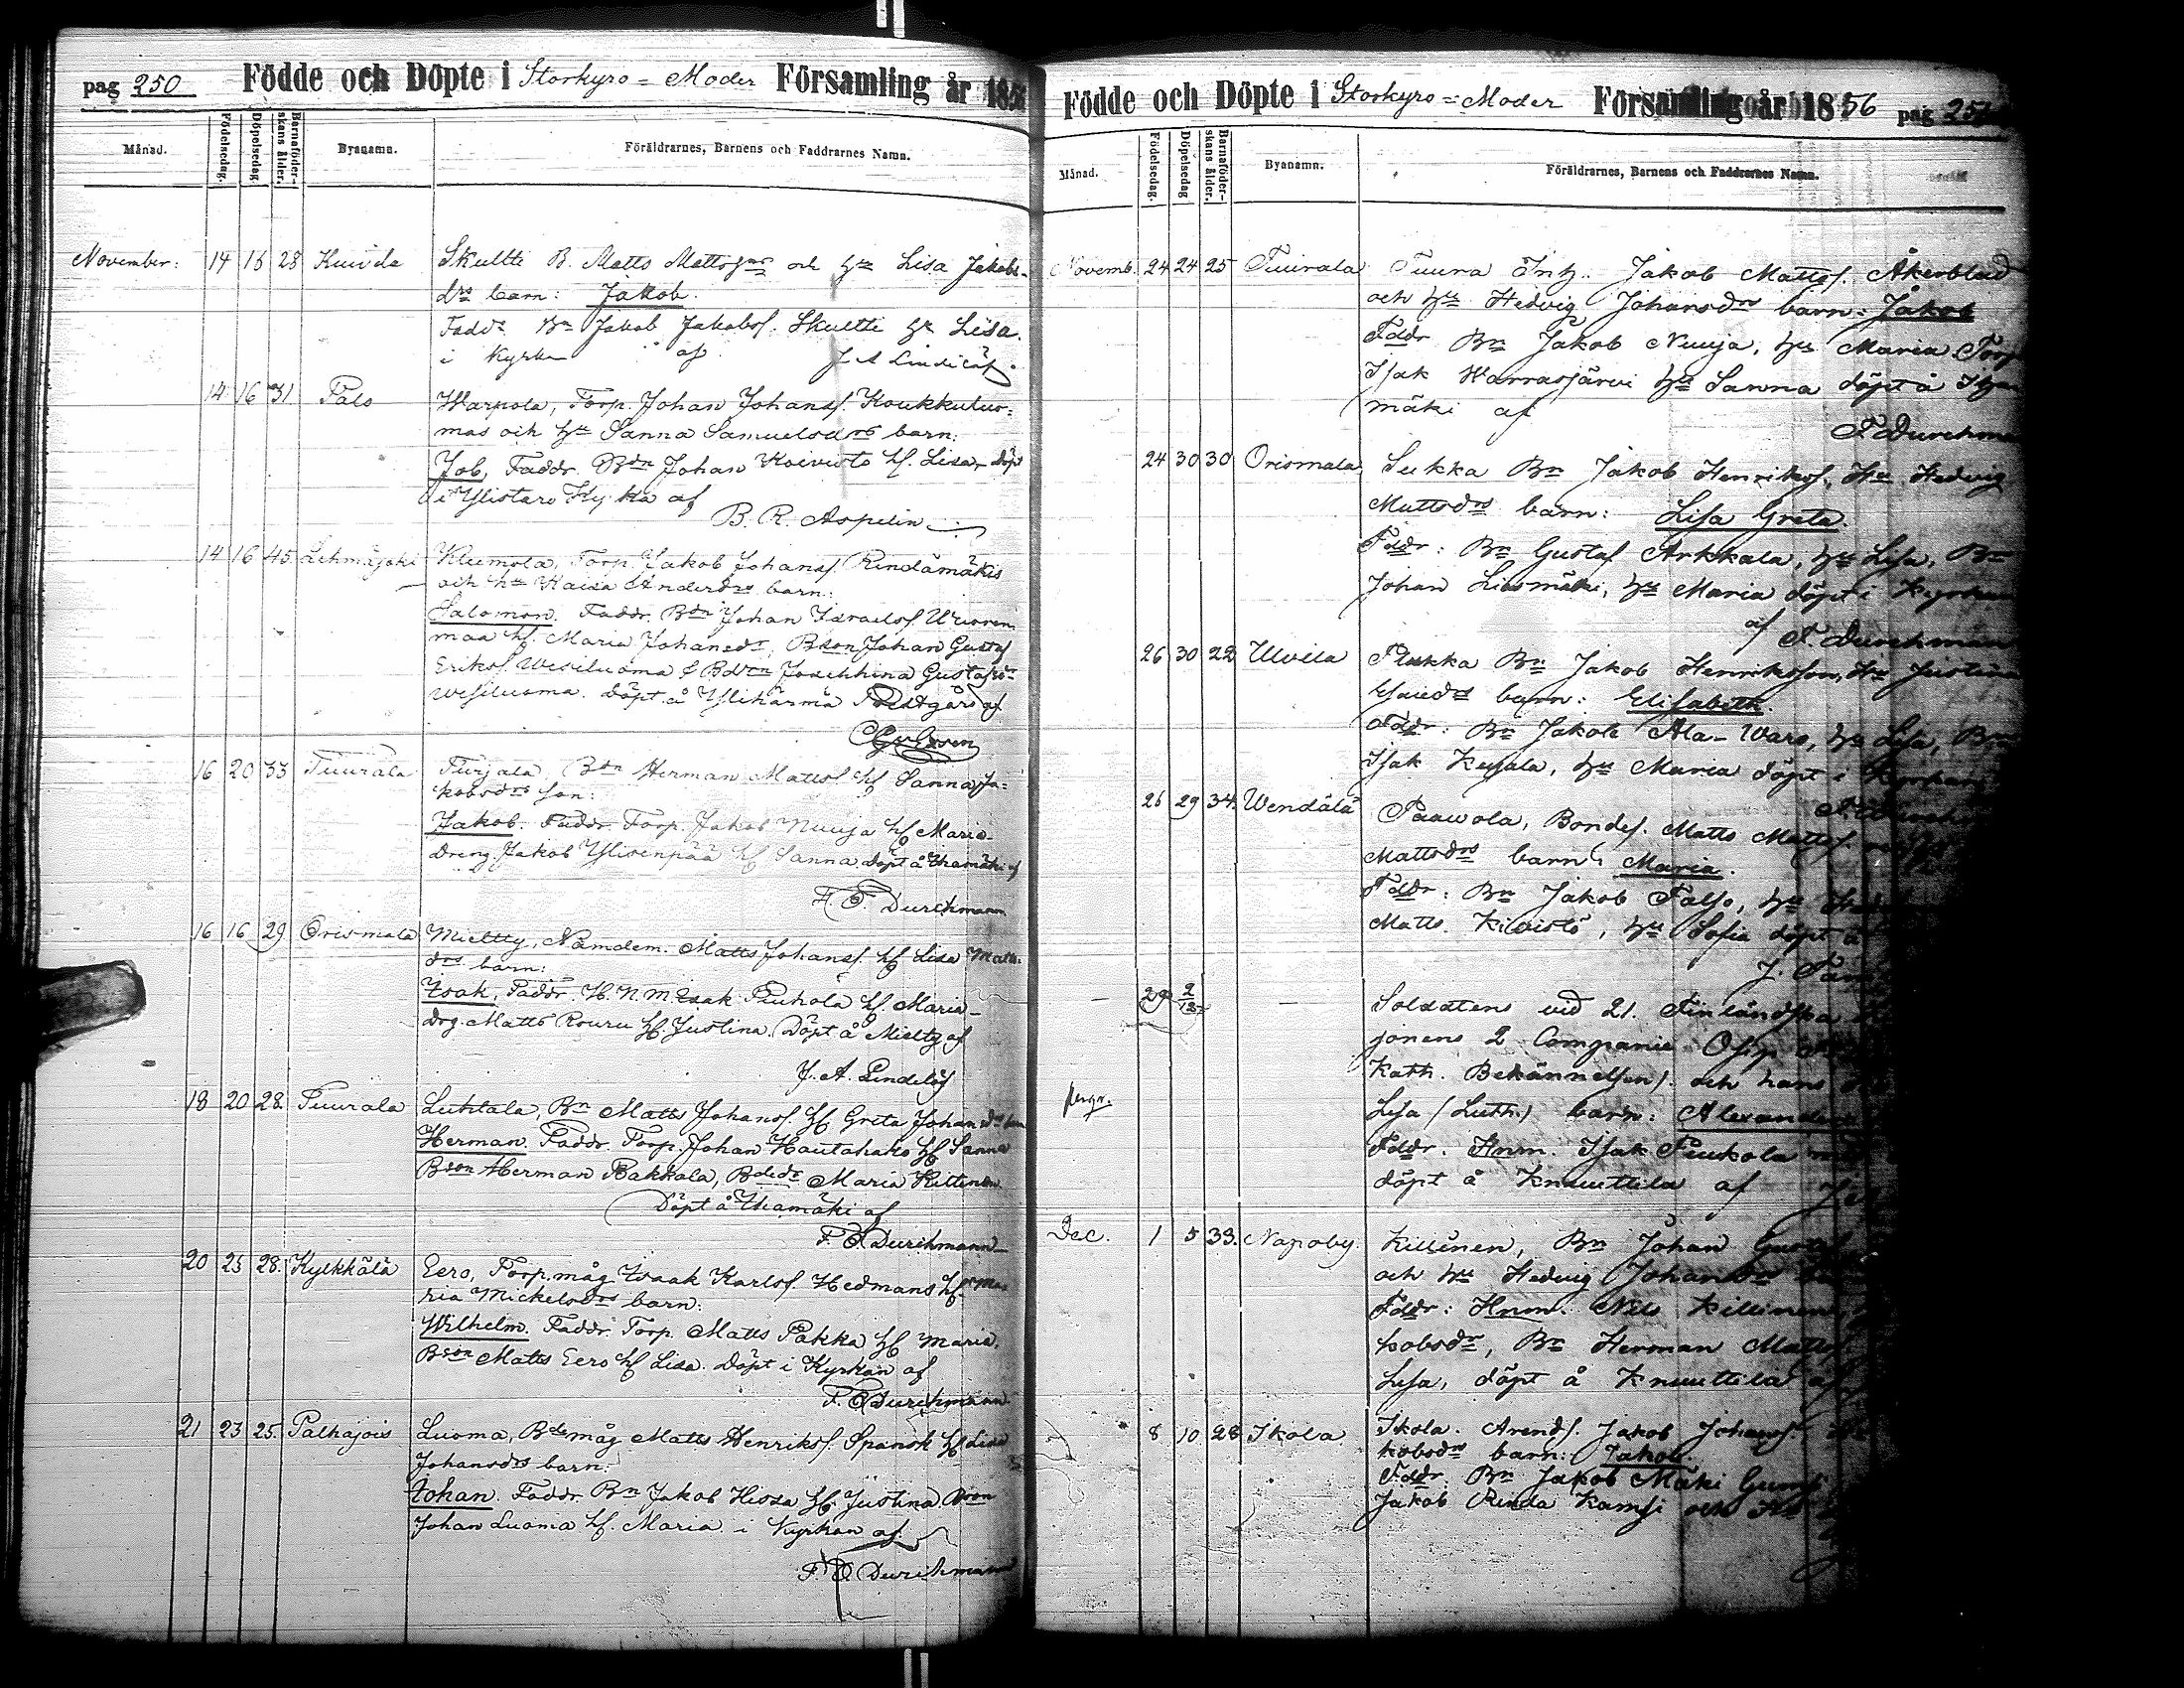 pag 250 Födde och Döpte i Storkyro = Moder Församling år 1856
Månad. Födelsedag. Döpelsedag. Barnaföderskans ålder. Byanamn. Föräldrarnes, Barnens och Faddrarnes Namn.
November: 14 15 28 Kuivila Skultti B. Matts Mattsson och hu Lisa Jakobs-
drs barn: Jakob.
Faddr Bn Jakob Jakobss. Skultti hu Lisa.
i Kyrkan af J A Lindelöf.
14 16 31 Palo Warpola, Torp. Johan Johanss. Koukkuluo-
mas och hu Sanna Samuelsdrs barn:
Job, Faddr. Bdn Johan Koivisto hf. Lisa, döpt
i Ylistaro Kyrka af
B. R. Aspelin
14 16 45 Lehmäjoki Klemola, Torp. Jakob Johanss. Rindamäkis
och hu Kaisa Andersdrs barn:
Salomon. Faddr. Bdn Johan Israelss.
maa hf. Maria Johansdr, Bson Johan Gustaf
Eriks. Wesiluoma & Bdron Josephina Gustafsdr
Wesiluoma. Döpt å Ylihärmä Prestgård af

16 20 33 Tuurala Turjala, Bdn Herman Mattss. hf Sanna Ja-
kobsdrs son:
Jakob. Faddr. Torp. Jakob Nuuja hf Maria
Dreng. Jakob Ylisenpää hf Sanna döpt å Ikamäki af
F. O. Durchmann
16 16 29 Orismala Mieltty, Nämdem. Matts Johanss. hf Lisa Matts-
drs barn:
Isak, Faddr. H. N. M. Isak Piuhola hf Maria
drg. Matts Rouru hf. Justina. Döpt å Mieltty af
J. A. Lindelöf
18 20 28. Tuurala Luhtala, Bn Matts Johanss. hf Greta Johansdrs barn
Herman. Faddr. Torp. Johan Hautahako hf Sanna
Bson Herman Pakkala, Bdedr Maria Kittinen
Döpt å Ikamäki af
F. O. Durchmann
20 23 28. Kylkkälä Eero, Torp.måg Isaak Karlss. Hedmans hf. Ma-
ria Mickelsdrs barn:
Wilhelm. Faddr. Torp. Matts Pakka hf Maria.
Bson Matts Eero hf Lisa. Döpt i Kyrkan af
F. O Durchmann
21 23 25. Palhajois Luoma, Bdemåg Matts Henrikss. Spansk hf Lisa
Johansdrs barn:
Johan. Faddr. Bn Jakob Hissa hf. Justina Bson
Johan Luoma hf. Maria i Kyrkan af
F. O Durchmann
Födde och Döpte i Storkyro = Moder Församling år 1856 pag 251
Månad. Födelsedag. Döpelsedag Barnaföderskans ålder. Byanamn. Föräldrarnes, Barnens och Faddrarnes Namn.
Novemb. 24 24 25 Tuurala Tuura Inh. Jakob Mattss. Åkerblad
och hu Hedvig Johansdrs barn: Jakob
Fddr Bn Jakob Nuuja, hu Maria Torp
Isak Harrasjärvi hu Sanna döpt å Ika
mäki af
F Durchma
24 30 30 Orismala Sukka Bn Jakob Henrikss, Hu Hedvig
Mattsdrs barn: Lisa Greta.
Fddr: Bn Gustaf Arkkala, hu Lisa, Bn
Johan Liesmäki, hu Maria döpt i Kyrkan
af F. Durchmann
26 30 22 Ulvila Plukka Bn Jakob Henriksson, Hu Justina
Esaiedrs barn: Elisabeth.
Fddr: Bn Jakob Ala-Waro, hu Lisa, Bn
Isak Keyala, hu Maria döpt i Kyrkan

26 29 34. Wendälä Paavola, Bondes. Matts Mattss.
Mattsdrs barn: Maria.
Fddr: Bn Jakob Palso, hu
Matts. Kivistö, hu Sofia döpt å
J.
29 2/12 Soldatens vid 21. Finländska
jonens 2 Companie Osip
Kath. Bekännelsen) och hans
Lisa (Luth.) barn: Alexander
Fddr. Hnm. Isak Piuhola
döpt å Knuuttila af
Dec. 1 5 33. Napoby. Killinen, Bn Johan Gustaf
och hu Hedvig Johansdrs
Fddr: Hnm. Nils Killinen
kobsdr, Bn Herman Mattss
Lisa, döpt å Knuuttila af
8 10 28 Ikola Ikola. Arends. Jakob Johanss.
kobsdrs barn: Jakob.
Fddr. Bn Jakob Mäki Gunsi
Jakob Rinda Kamsi och